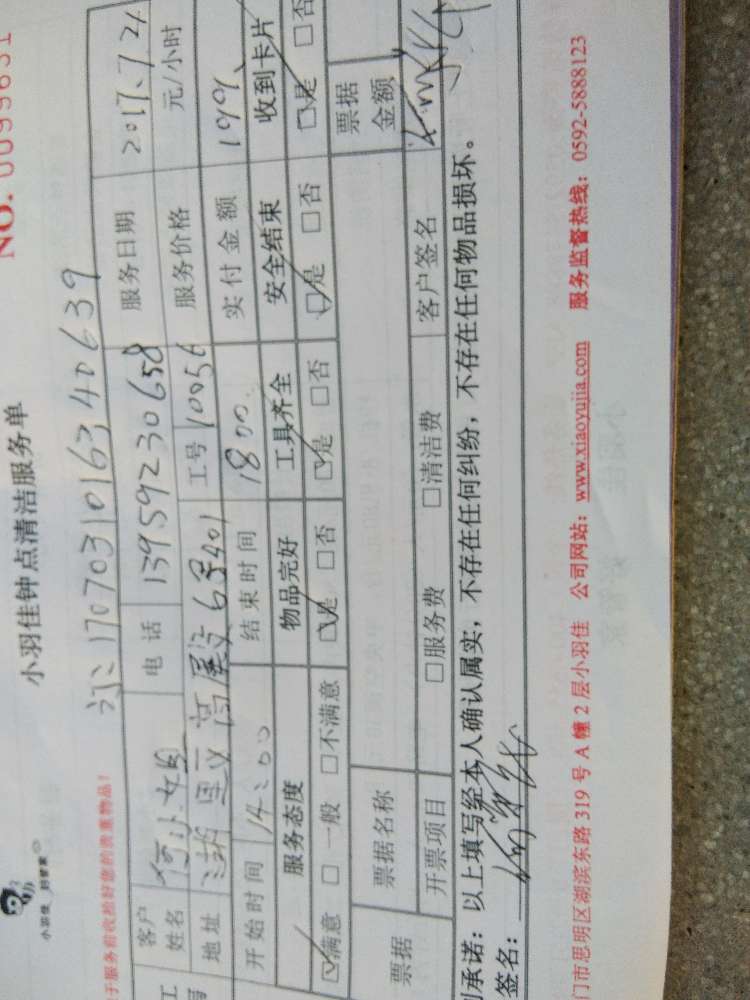 小羽佳 到管家
小羽佳钟点清洁服务单
NO. 0099651
于服务前收拾好您的贵重物品!
1707031016340639
客户姓名 何小姐 电话 13959230658 服务日期 2017.7.24
地址 6号401 工号 10056 服务价格 元/小时
开始时间 14:00 结束时间 1800 实付金额 199
服务态度 物品完好 工具齐全 安全结束 收到卡片
☑满意 □一般 □不满意 ☑是 □否 ☑是 □否 ☑是 □否 ☑是 □否
票据 票据名称 票据金额
开票项目 □服务费 □清洁费 客户签名
承诺：以上填写经本人确认属实，不存在任何纠纷，不存在任何物品损坏。
签名：
门市思明区湖滨东路 319 号 A 幢 2 层小羽佳 公司网站：www.xiaoyujia.com 服务监督热线：0592-5888123